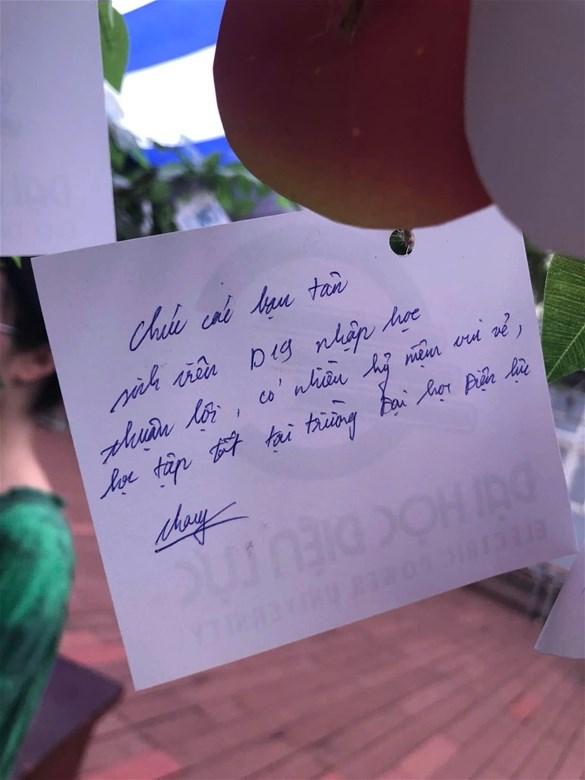 Chúc các bạn tân
sinh viên D19 nhập học
thuận lợi, có nhiều kỷ niệm vui vẻ,
học tập tốt tại trường Đại học Điện lực
ĐẠI HỌC ĐIỆN LỰC
ELECTRIC POWER UNIVERSITY